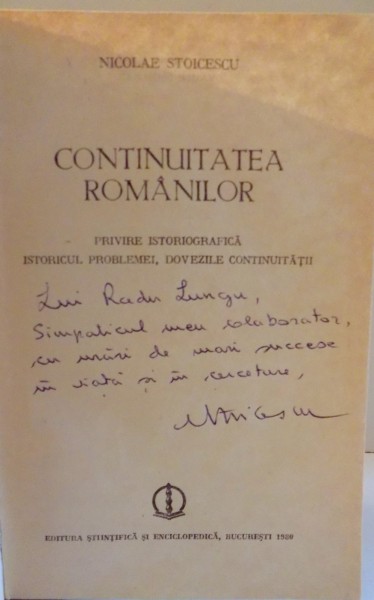 NICOLAE STOICESCU
CONTINUITATEA
ROMÂNILOR
PRIVIRE ISTORIOGRAFICĂ
ISTORICUL PROBLEMEI, DOVEZILE CONTINUITĂȚII
Lui Radu Lungu,
Simpaticul meu colaborator,
cu urări de mari succese
în viață și în cercetare,
NStoicescu
EDITURA ȘTIINȚIFICĂ ȘI ENCICLOPEDICĂ, BUCUREȘTI 1980